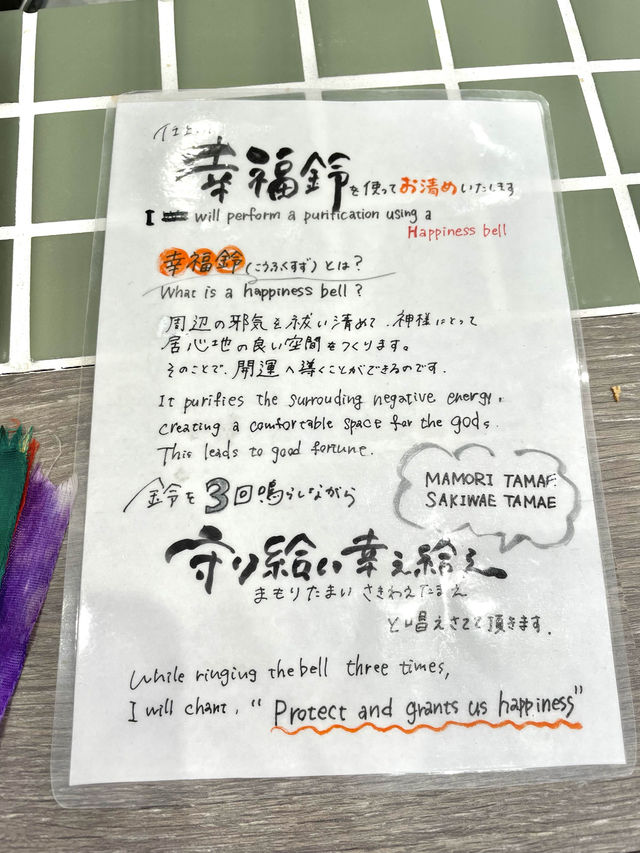 仕上...
幸福鈴を使ってお清めいたします
I will perform a purification using a
Happiness bell
幸福鈴(こうふくすず)とは?
What is a happiness bell?
周辺の邪気を祓い清めて、神様にとって
居心地の良い空間をつくります。
そのことで、開運へ導くことができるのです.
It purifies the surrouding negative energy,
creating a comfortable space for the gods.
This leads to good fortune.
鈴を3回鳴らしながら
MAMORI TAMAE
SAKIWAE TAMAE
守り給い幸え給え
まもりたまい さきわえたまえ
と唱えさせて頂きます.
While ringing the bell three times,
I will chant, "Protect and grants us happiness"